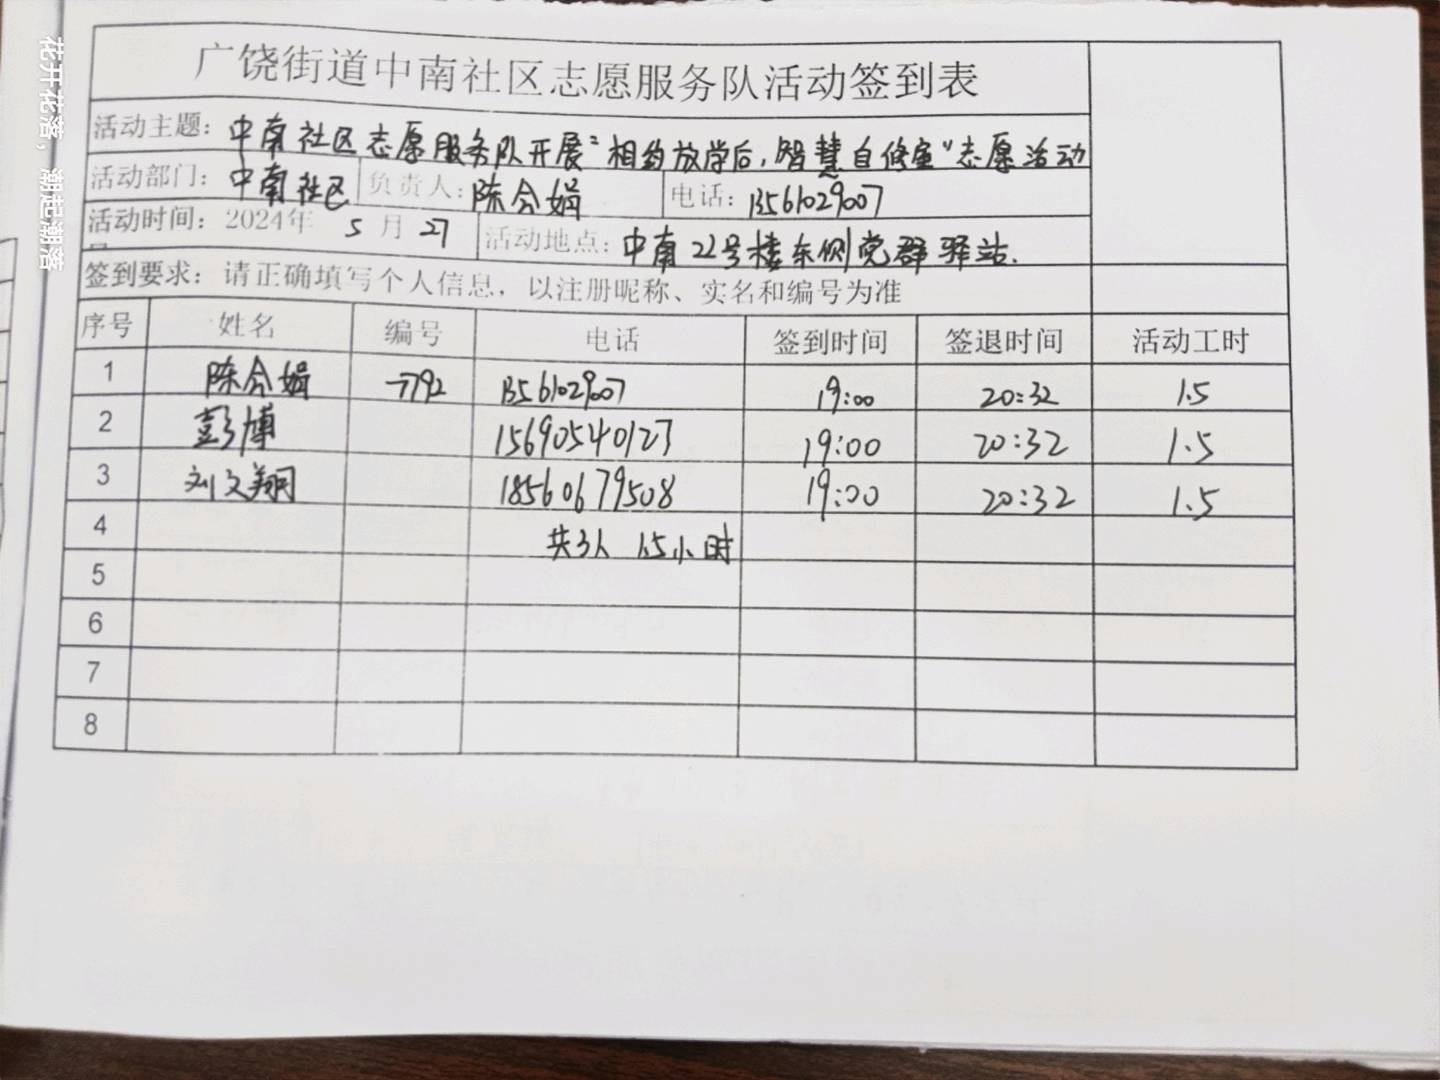 花开花落，潮起潮落
广饶街道中南社区志愿服务队活动签到表
活动主题：中南社区志愿服务队开展"相约放学后，智慧自修室"志愿活动
活动部门：中南社区 负责人：陈会娟 电话：13561029007
活动时间：2024年 5 月 27 活动地点：中南22号楼东侧党群驿站.
签到要求：请正确填写个人信息，以注册昵称、实名和编号为准
序号 姓名 编号 电话 签到时间 签退时间 活动工时
1 陈会娟 7792 13561029007 19:00 20:32 1.5
2 彭博 15690540127 19:00 20:32 1.5
3 刘文翔 18560679508 19:00 20:32 1.5
4 共3人 1.5小时
5
6
7
8